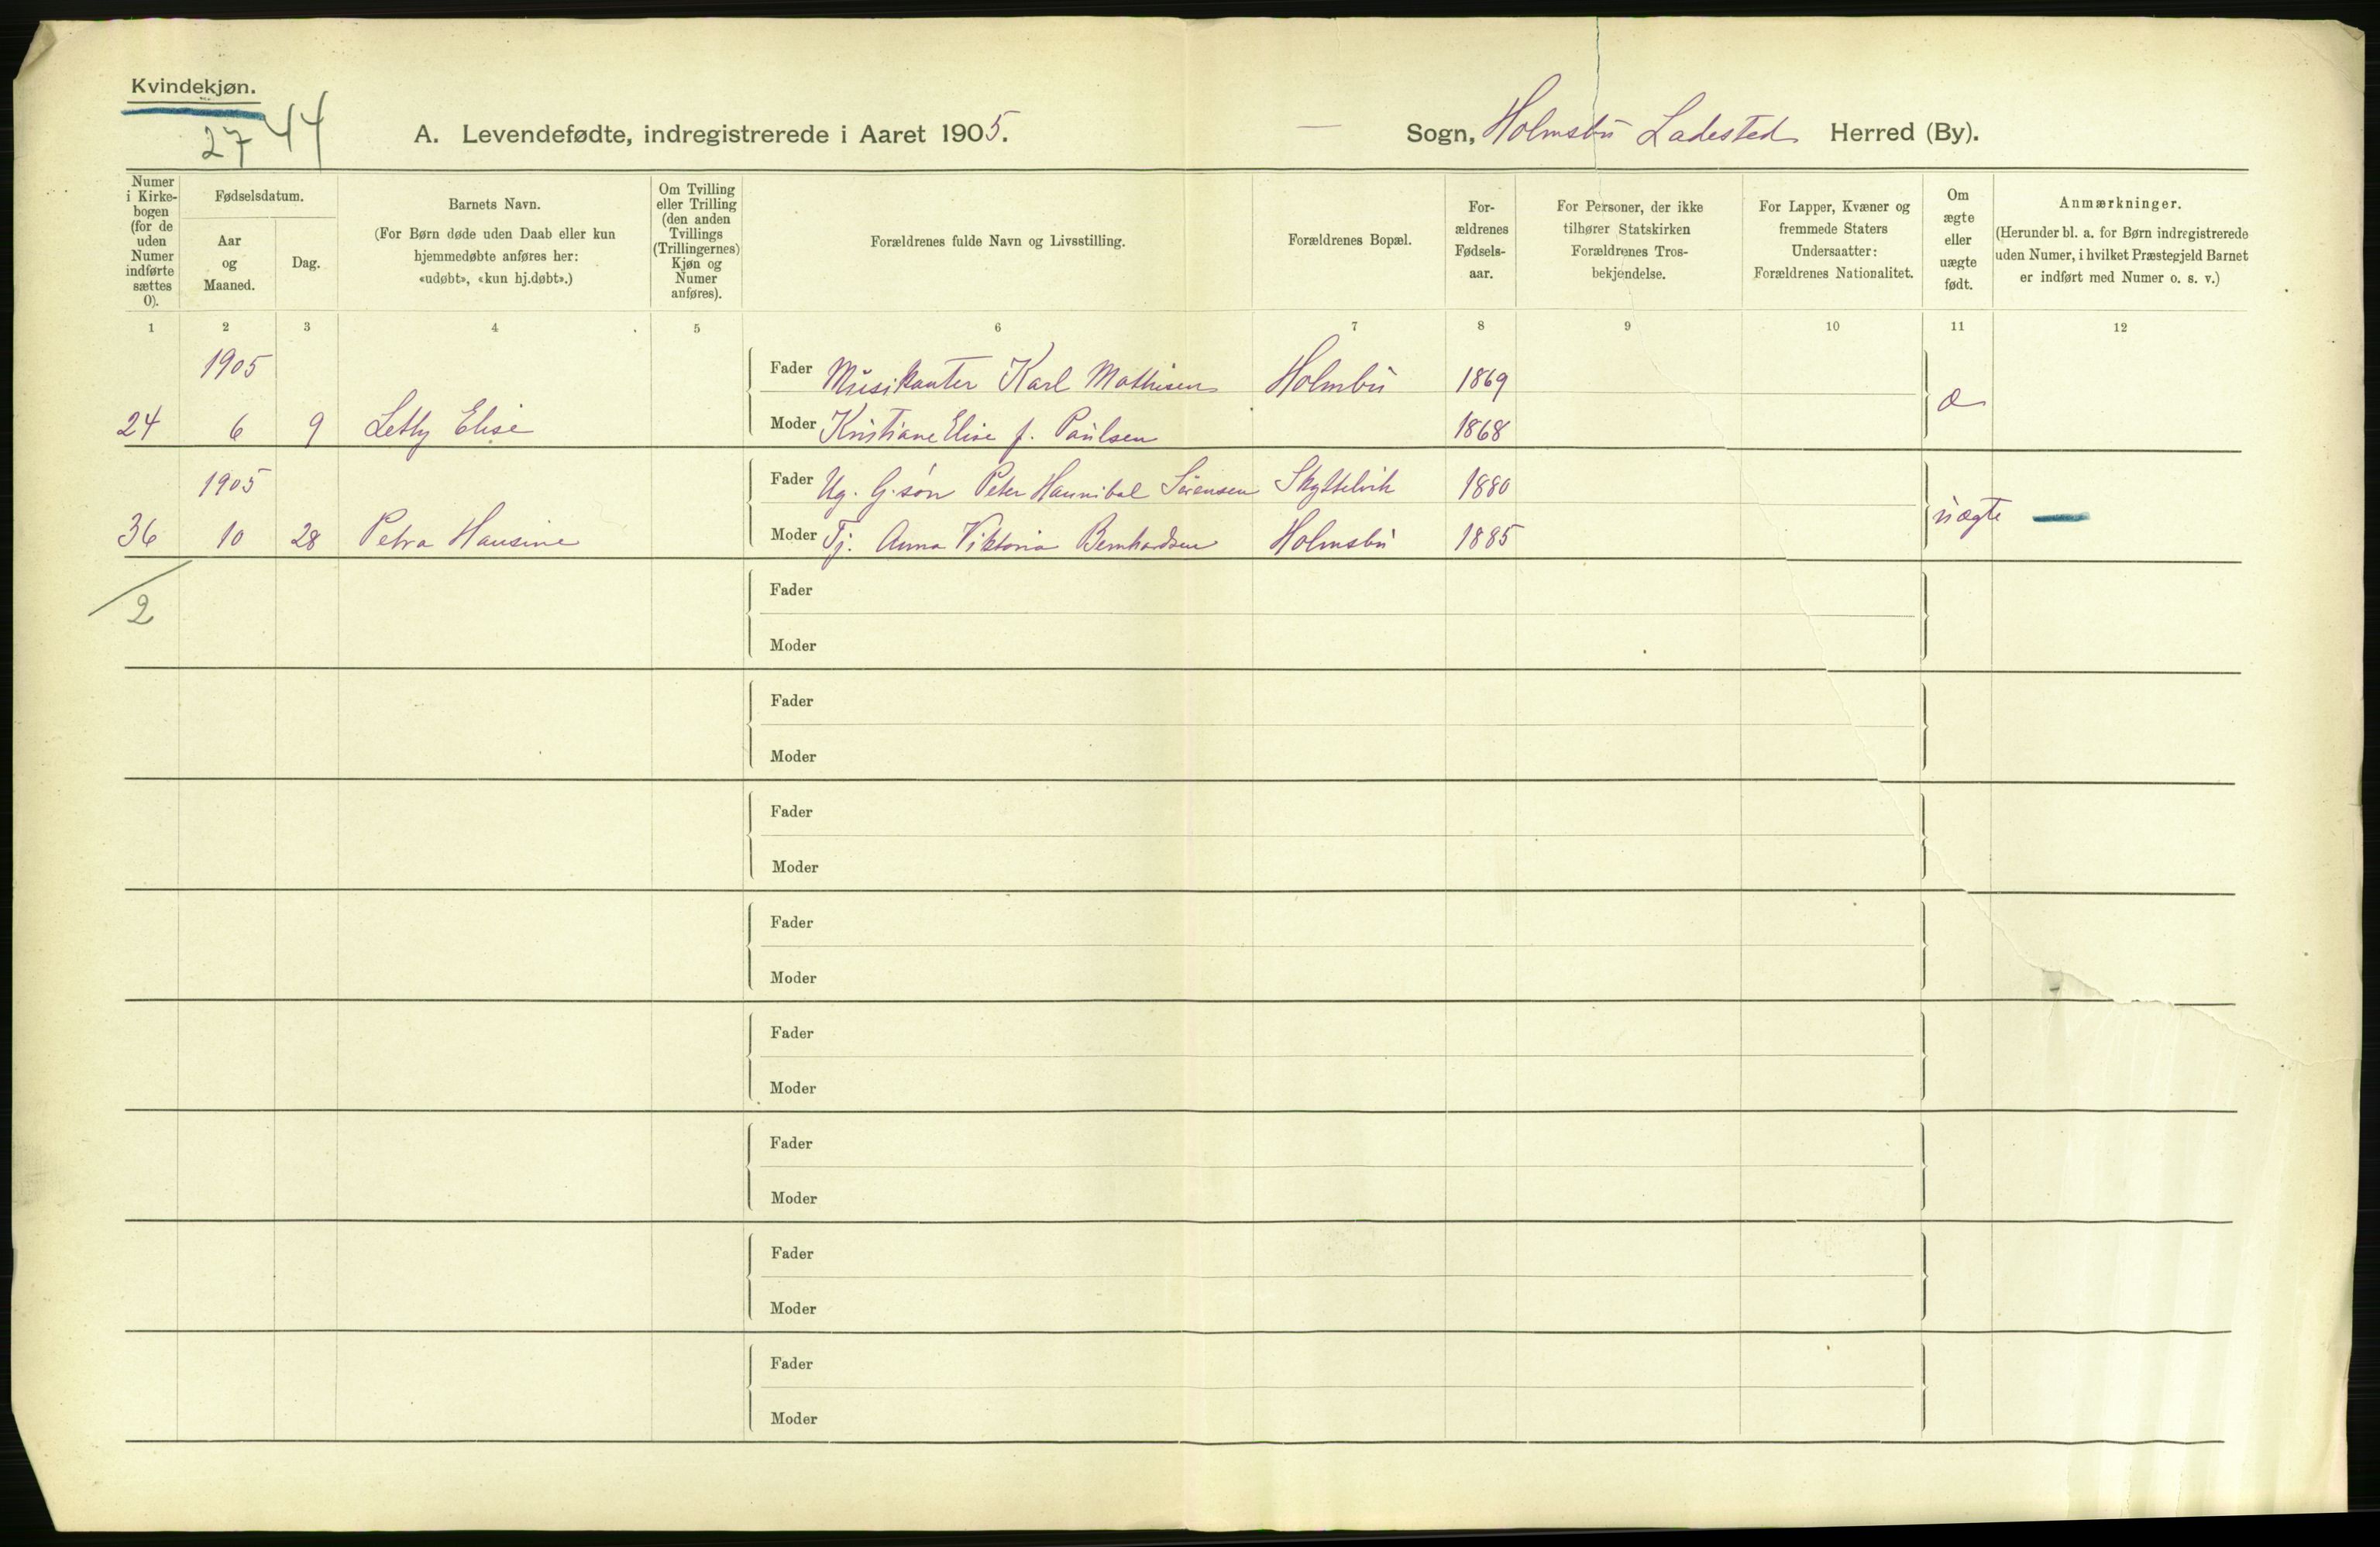 Kvindekjøn.
27 44
A. Levendefødte, indregistrerede i Aaret 1905. — Sogn, Holmsbu Ladested Herred (By).
Numer i Kirkebogen (for de uden Numer indførte sættes 0).
Fødselsdatum.
Aar og Maaned.
Dag.
Barnets Navn.
(For Børn døde uden Daab eller kun hjemmedøbte anføres her: «udøbt», «kun hj.døbt».)
Om Tvilling eller Trilling (den anden Tvillings (Trillingernes) Kjøn og Numer anføres).
Forældrenes fulde Navn og Livsstilling.
Forældrenes Bopæl.
Forældrenes Fødselsaar.
For Personer, der ikke tilhører Statskirken Forældrenes Trosbekjendelse.
For Lapper, Kvæner og fremmede Staters Undersaatter: Forældrenes Nationalitet.
Om ægte eller uægte født.
Anmærkninger.
(Herunder bl. a. for Børn indregistrerede uden Numer, i hvilket Præstegjeld Barnet er indført med Numer o. s. v.)
1 2 3 4 5 6 7 8 9 10 11 12
1905 Fader Musikanter Karl Mathisen Holmbu 1869
24 6 9 Letty Elise Moder Kristiane Elise f. Paulsen 1868 æ
1905 Fader Ug. G.søn Peter Hannibal Sørensen 1880
36 10 28 Petra Hansine Moder Tj. Anna Viktoria Bernhardsen Holmsbu 1885 uægte —
2
Fader
Moder
Fader
Moder
Fader
Moder
Fader
Moder
Fader
Moder
Fader
Moder
Fader
Moder
Fader
Moder